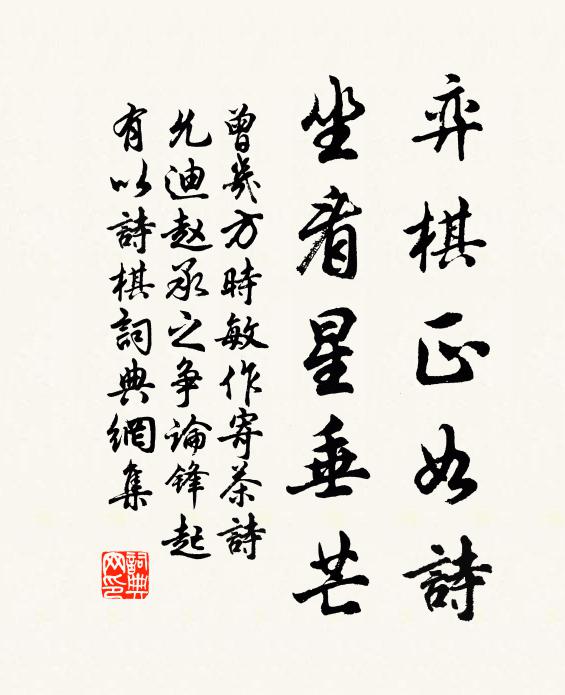 弈棋正如詩
坐看星垂芒
曾幾方時敏作寄茶詩
允迪赵承之争論锋起
有以詩棋詞典網集
詞典網印